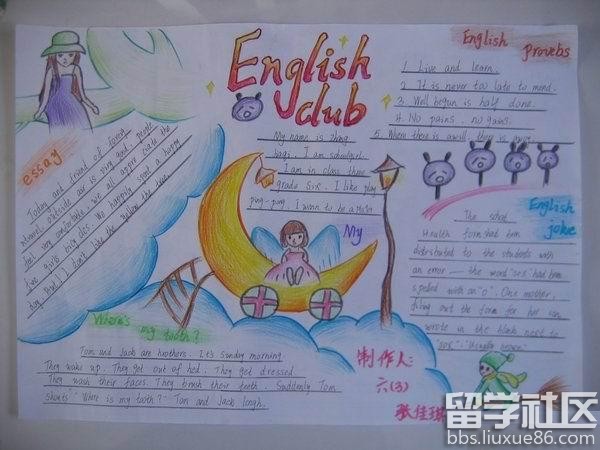 English club
English Provebs
1. Live and learn.
2. It is never too late to mend.
3. Well begun is half done.
4. No pains, no gains.
5. Where there is a will, there is away.
essay
Today and friend of
outside air is very good, people
feel very comfortable, we all
five girls
day. But, I don't like the yellow the tree.
My name is zhang
I am schoolgirl.
I am in class three
grade Six. I like play
ping-pong. I wann to be a
My
English joke
The school
Health form had been
distributed to the students with
an error — the word "sex" had been
spelled with an "o". One mother,
filling out the form for her son,
wrote in the blank next to
Where's my tooth?
Tom and Jack are brothers. It's Sunday morning
They wake up. They get out of bed. They get dressed.
They wash their faces. They brush their teeth. Suddenly Tom
shouts "Where is my tooth?" Tom and Jack laugh.
制作人:
六(3)
留学社区
bbs.liuxue86.com